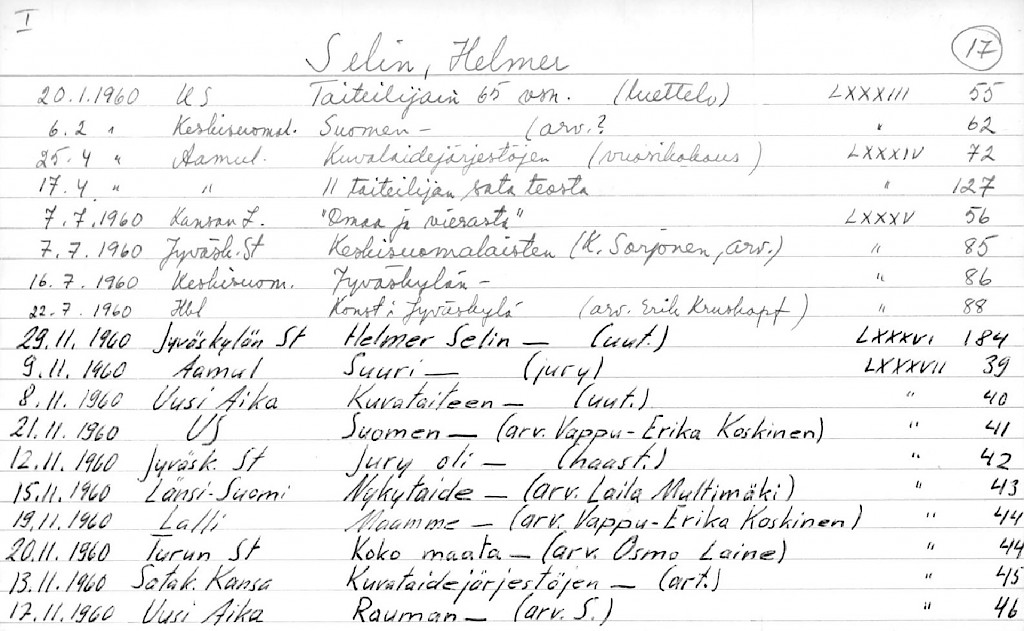 I
Selin, Helmer 17
20.1.1960 US Taiteilijain 65 vsn. (luettelo) LXXXIII 55
6.2 " Keskisuomal. Suomen – (arv.? " 62
25.4 " Aamul. Kuvataidejärjestöjen (vuosikokous) LXXXIV 72
17.4 " " 11 taiteilijan sata teosta " 127
7.7.1960 Kansan L. "Omaa ja vierasta" LXXXV 56
7.7.1960 Jyväsk. St Keskisuomalaisten (K. Sorjonen, arv.) " 85
16.7.1960 Keskisuom. Jyväskylän – " 86
22.7.1960 Hbl Konst i Jyväskylä (arv. Erik Kruskopf) " 88
29.11.1960 Jyväskylän St Helmer Selin – (uut.) LXXXVI 184
9.11.1960 Aamul Suuri – (jury) LXXXVII 39
8.11.1960 Uusi Aika Kuvataiteen – (uut.) " 40
21.11.1960 US Suomen – (arv. Vappu-Erika Koskinen) " 41
12.11.1960 Jyväsk. St Jury oli – (haast.) " 42
15.11.1960 Länsi-Suomi Nykytaide – (arv. Laila Multimäki) " 43
19.11.1960 Lalli Maamme – (arv. Vappu-Erika Koskinen) " 44
20.11.1960 Turun St Koko maata – (arv. Osmo Laine) " 44
13.11.1960 Satak. Kansa Kuvataidejärjestöjen – (art.) " 45
17.11.1960 Uusi Aika Rauman – (arv. S.) " 46